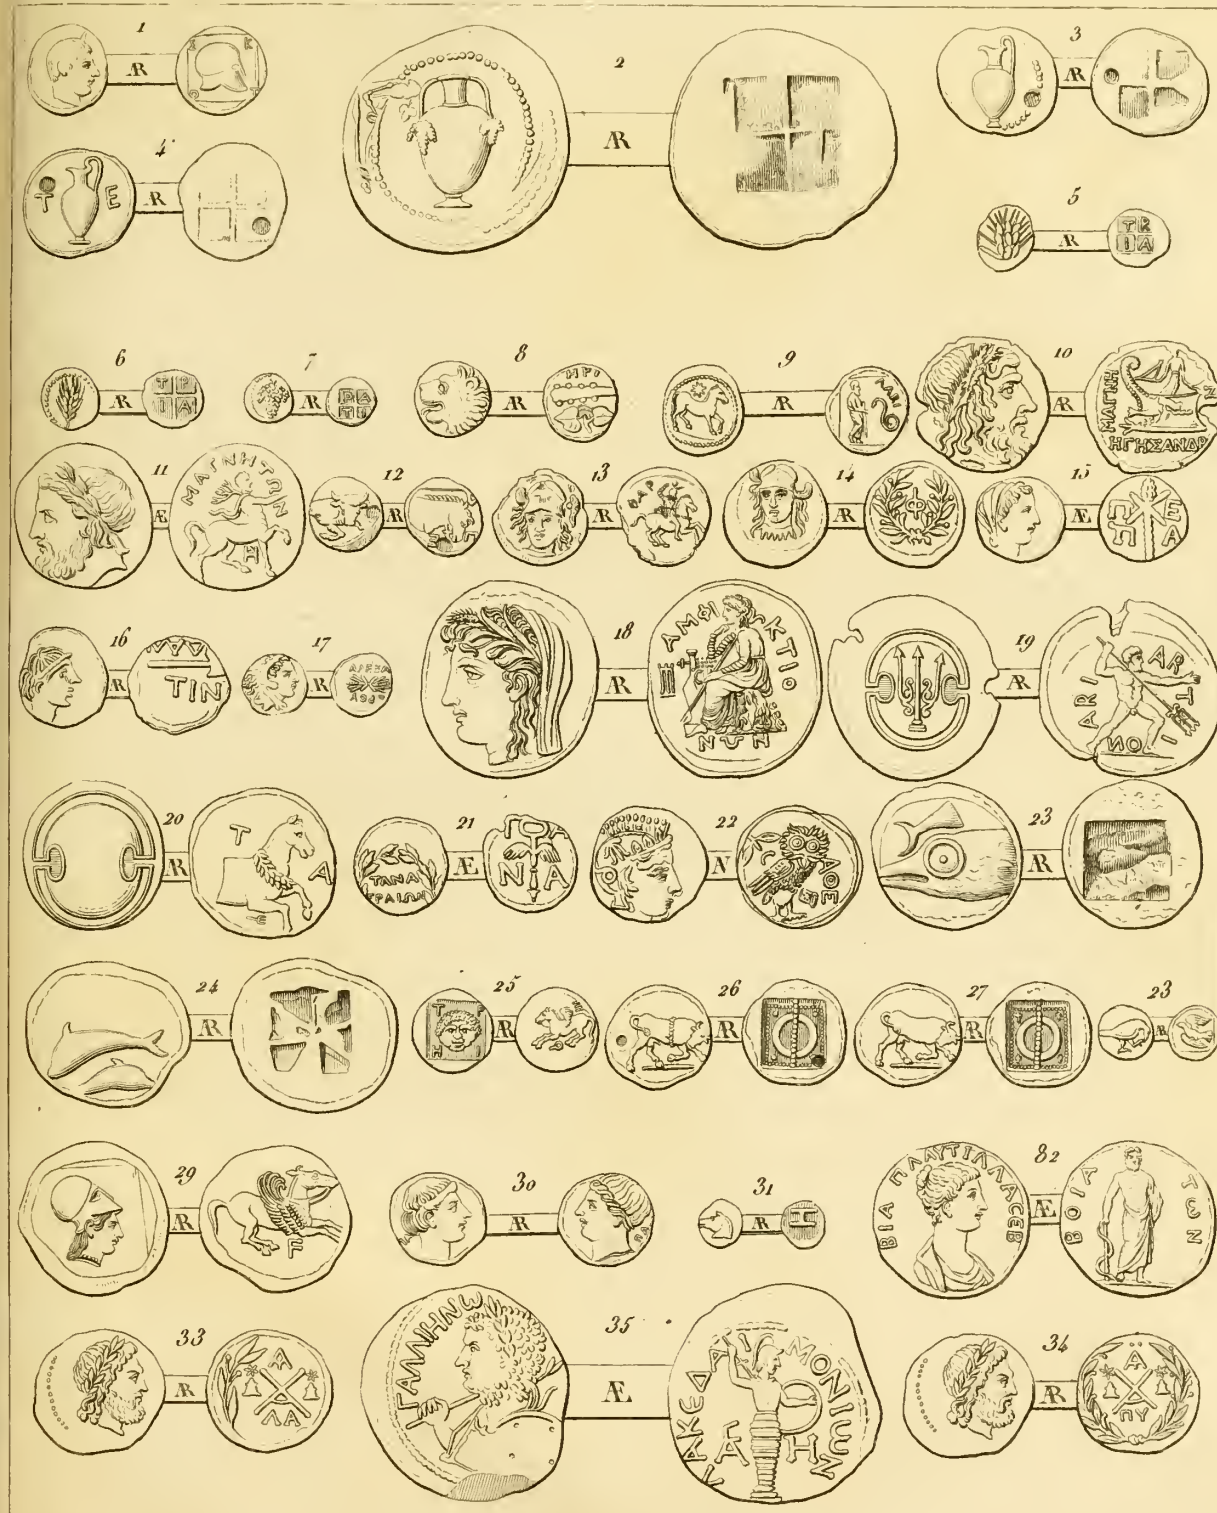 1
AR
Σ K
2
AR
3
AR
4
T E
AR
5
AR
TR
IA
6
AR
TR
IA
7
AR
8
AR
ΗΡΙ
9
AR
10
AR
ΜΑΓΝΗ
ΗΓΗΣΑΝΔΡ
11
Æ
ΜΑΓΝΗΤΩΝ
12
AR
13
AR
ΦΑΡ
14
AR
Φ
15
Æ
16
AR
TIN
17
AR
18
AR
ΑΜΦΙΚΤΙΟ
ΝΩΝ
19
AR
ARI
AR
T
ION
20
AR
T A
21
Æ
ΤΑΝΑ
ΓΡΑΙΩΝ
22
ΑΘΕ
23
AR
24
AR
25
AR
26
AR
27
AR
23
AR
29
AR
F
30
AR
31
AR
82
Æ
ΒΙΑ ΠΛΑΥΤΙΛΛΑ ϹΕΒ
ΒΟΙΑ ΤΩΝ
33
AR
Α
ΛΑ
35
Æ
ΓΑΛΛΙΗΝΩ
ΛΑΚΕΔΑΙΜΟΝΙΩΝ
Α Η
34
AR
Α
ΠΥ